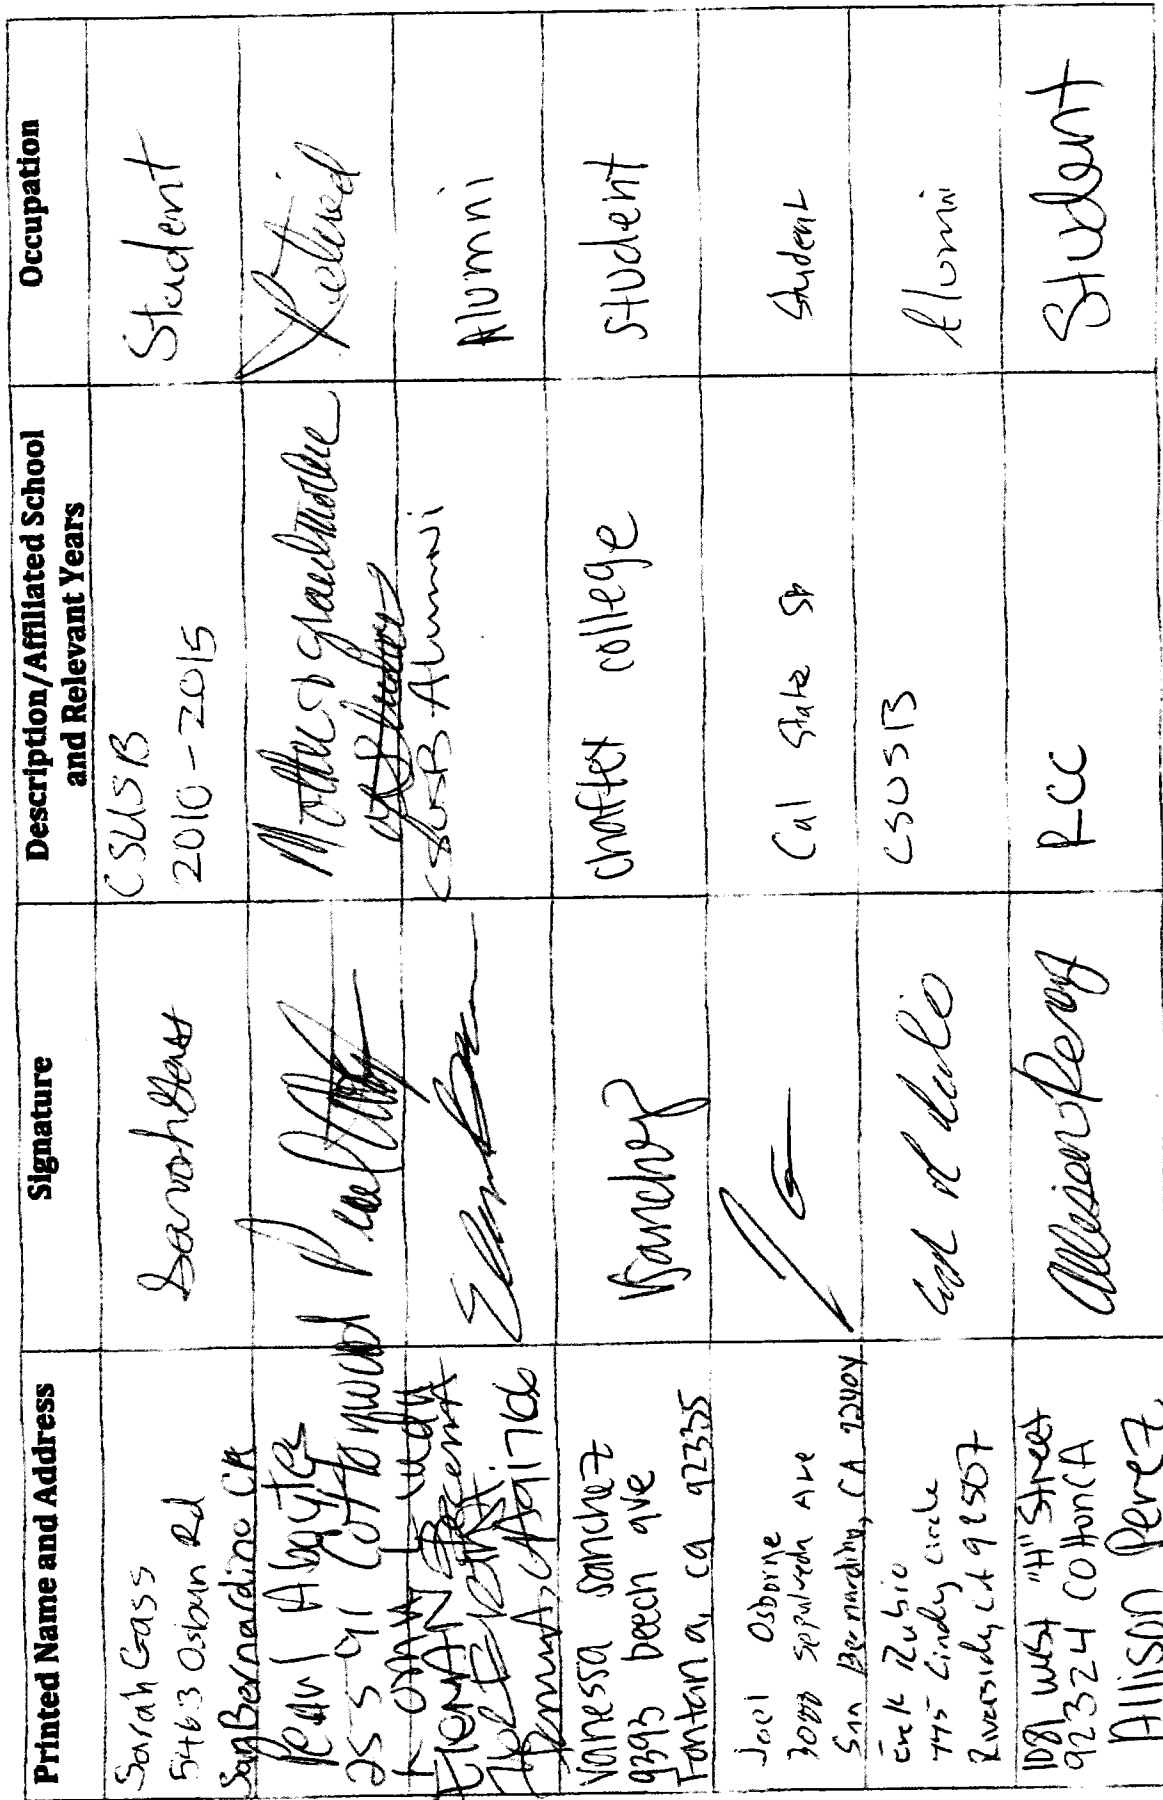 Printed Name and Address
Signature
Description/Affiliated School
and Relevant Years
Occupation
Sarah Gass
5463 Osbun Rd
San Bernardino CA
Sarah Gass
CSUSB
2010-2015
Student
Pearl Abayta
25591 Cottonwood
Pearl
Mother & grandmother
Retired
CSUSB Alumni
Alumni
Vanessa Sanchez
9393 beech ave
Fontana, ca 92335
VSanchez
chaffey college
student
Joel Osborne
Sepulveda Ave
San Bernardino, CA 92404
Cal State SB
Student
Erek Rubio
775 Cindy circle
Riverside, CA 92507
CSUSB
Alumni
1081 West "H" Street
92324 Colton CA
Allison Perez
Allison Perez
RCC
Student